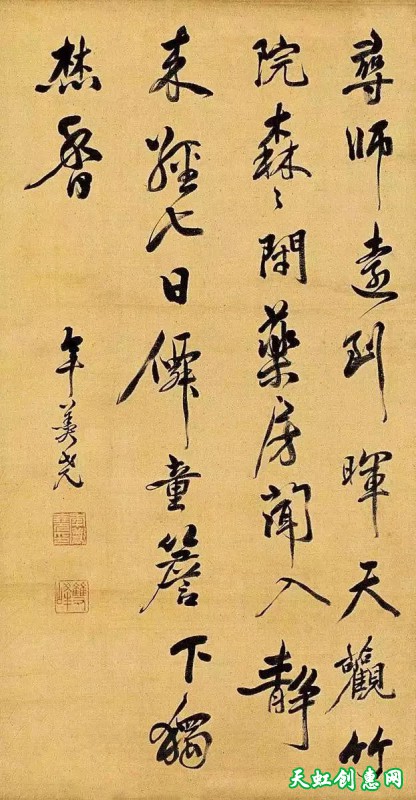 尋師遠到暉天觀竹
院森々閉藥房聞入靜
來經七日僊童簷下獨
焚香
年羹堯
天虹创意网